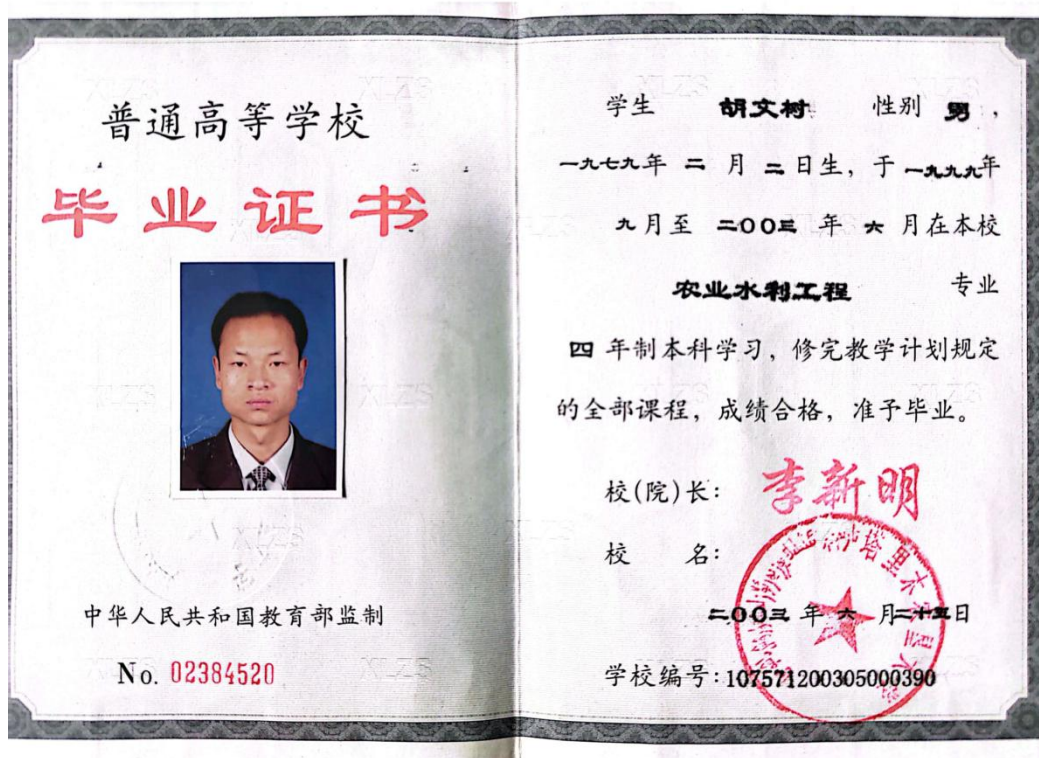 普通高等学校
毕业证书
中华人民共和国教育部监制
No. 02384520
学生 胡文树 性别 男，
一九七九年 二 月 二日生，于一九九九年
九月至 二00三 年 六 月在本校
农业水利工程 专业
四 年制本科学习，修完教学计划规定
的全部课程，成绩合格，准予毕业。
校(院)长：李新明
校 名：
塔里木
二00三 年 六 月二十五日
学校编号：107571200305000390
XLZS